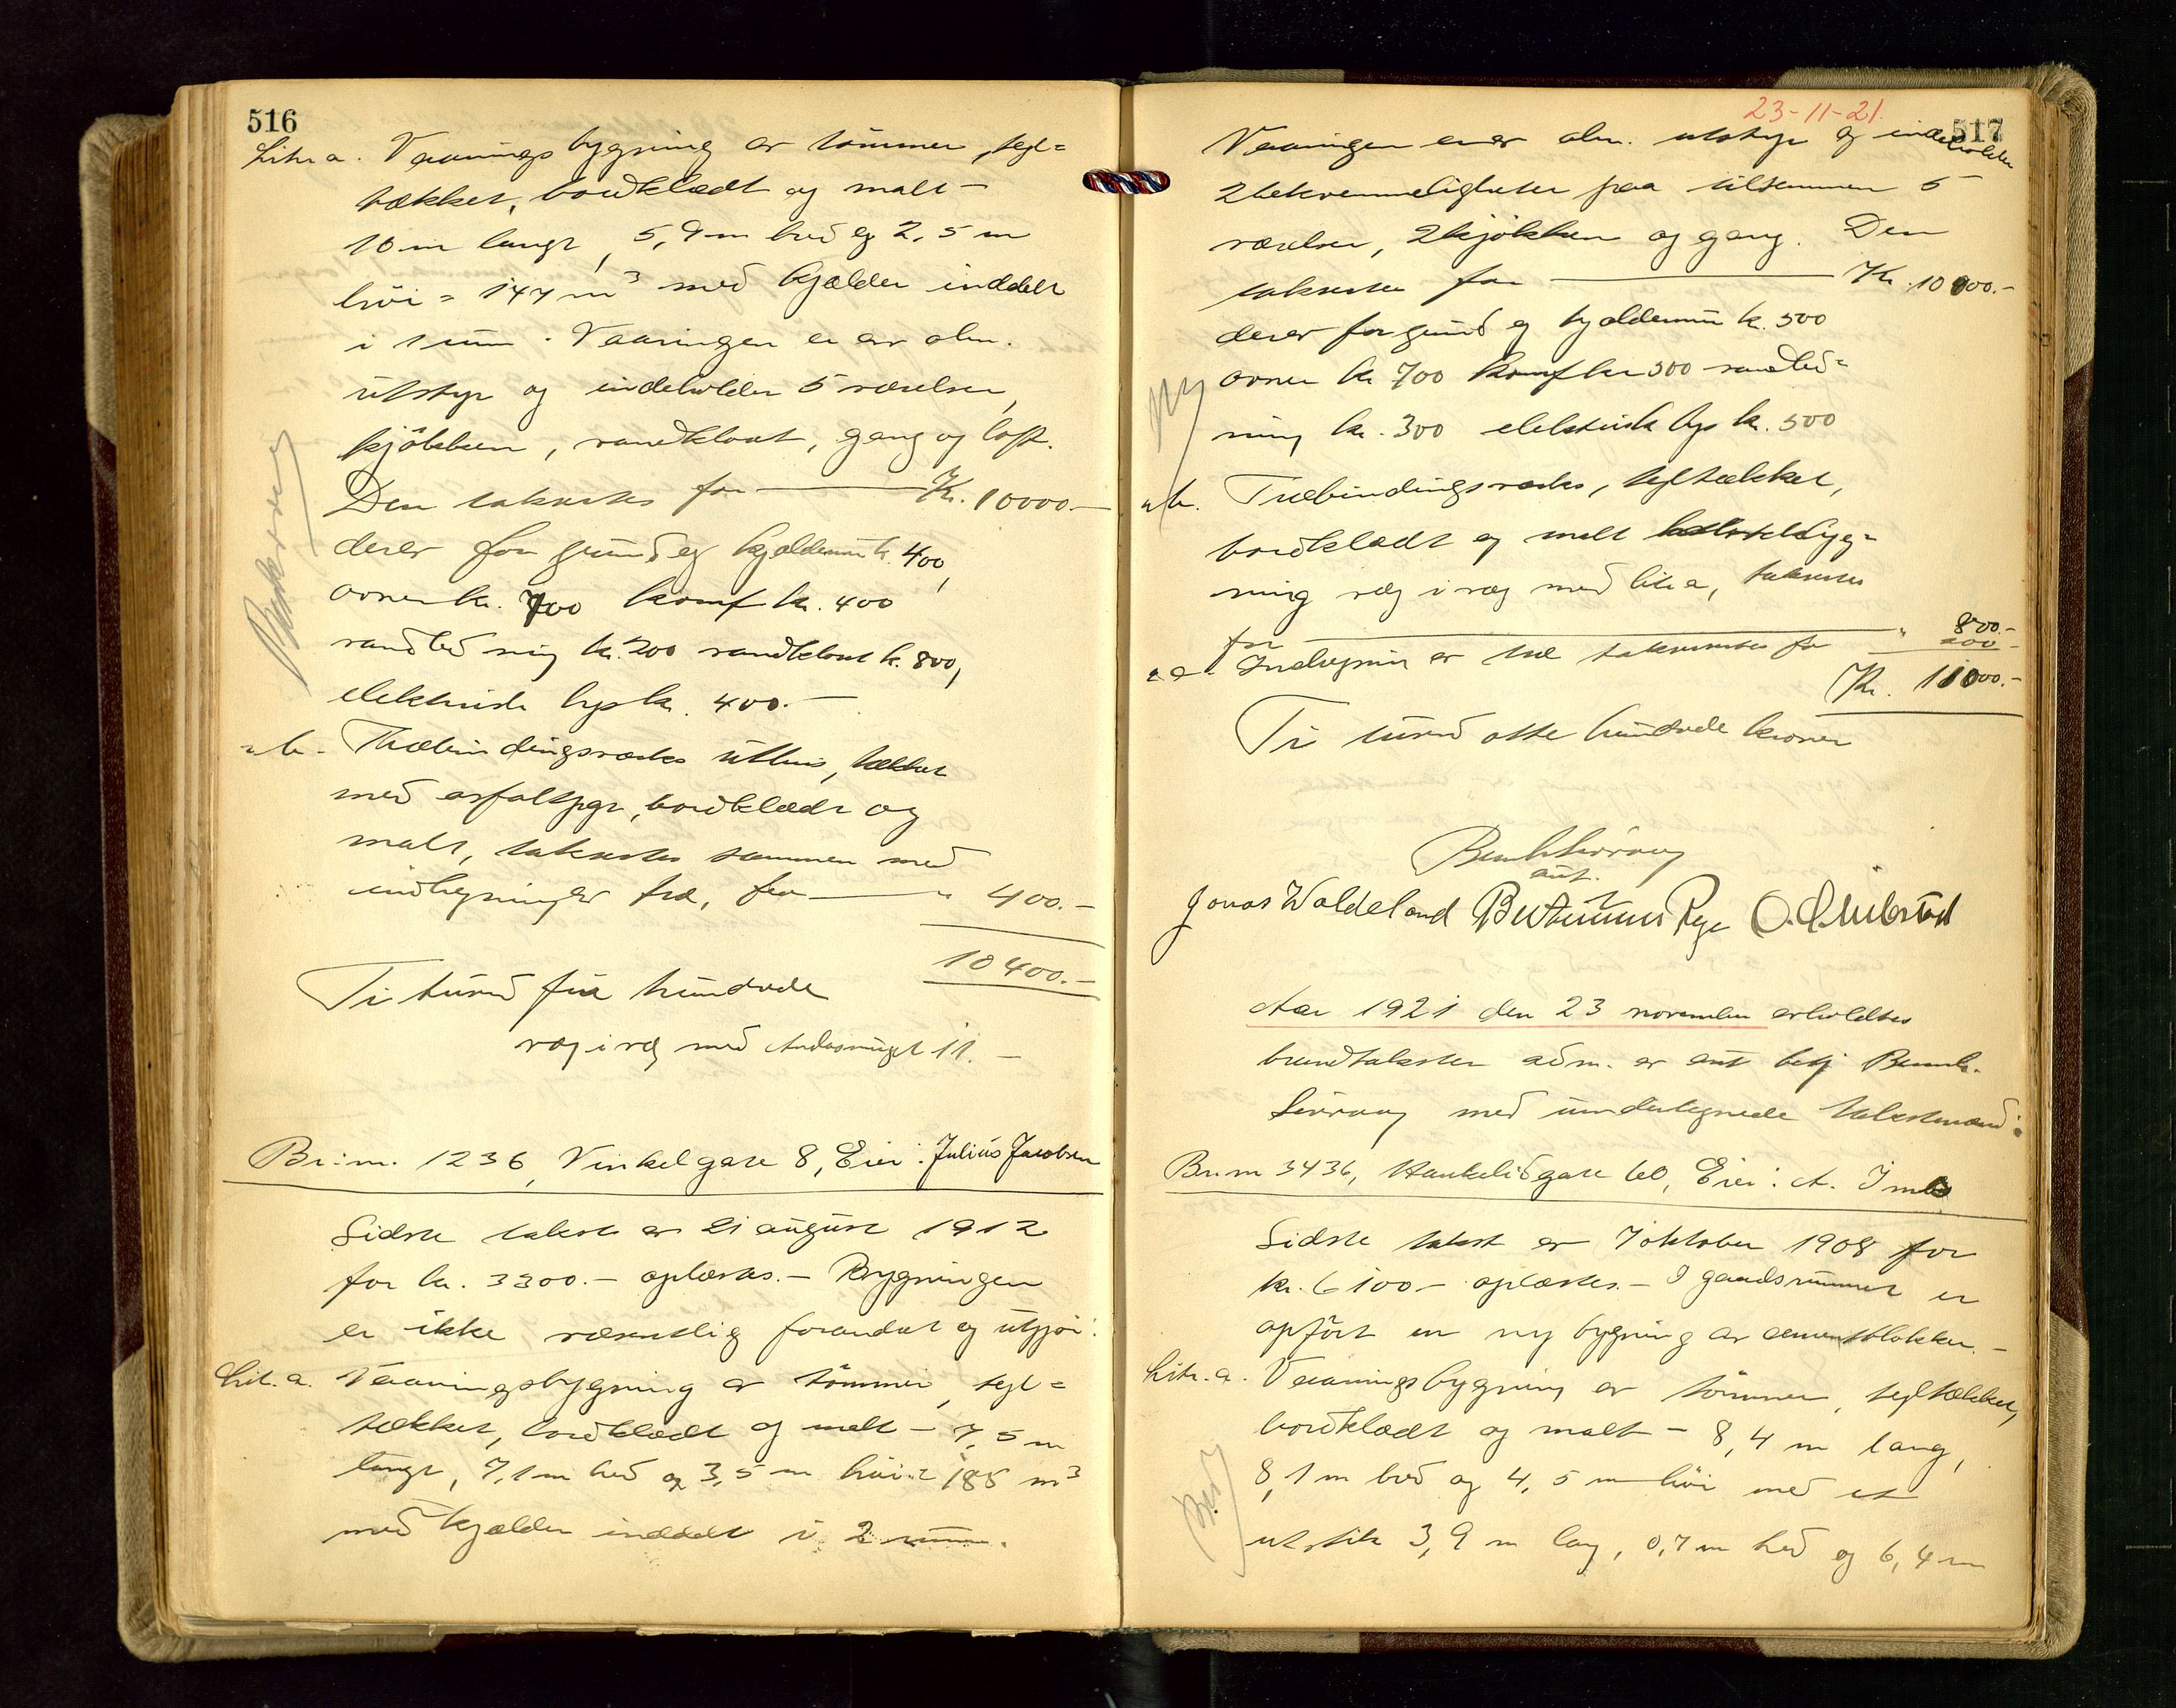 516
Litr. a. Vaaningsbygning av tömmer, tegl=
tækket, bordklædt og malt –
10 m langt, 5,9 m bred og 2,5 m
höi = 147 m³ med kjælder inddelt
i 1 rum. Vaaningen er av alm.
utstyr og indeholder 5 værelser,
kjökken, vandklosset, gang og loft.
Den taksertes for — Kr. 10000.–
derav for grund og kjælderrum k. 400,
ovner kr. 700 komf kr. 400
vandledning kr. 200 vandkloset k. 800,
elektrisk lys kr. 400.–
" b. Træbindingsverks uthus, tækket
med asfaltpap, bordklædt og
malt, taksertes sammen med
indhegning av træ, for — " 400.–
10400.–
Ti tusind fire hundrede
væg i væg med Andasmuget 11.–
Br: nr. 1236, Vinkelgate 8, Eier: Julius Jacobsen
Sidste takst av 21 august 1912
for kr. 3300.– oplæstes.– Bygningen
er ikke væsentlig forandret og utgjør:
Lit. a. Vaaningsbygning av tömmer, tegl=
tækket, bordklædt og malt – 7,5 m
langt, 7,1 m bred og 3,5 m höi = 185 m³
med kjælder inddelt i 2 rum.
23-11-21.
517
Vaaningen er av alm. utstyr og indeholder
2 bekvemmeligheter paa tilsammen 5
værelser, 2 kjökken og gang. Den
taksertes for — Kr. 10000.–
derav for grund og kjælderrum k. 500
ovner kr 700 komf kr 500 vandled=
ning kr. 300 elektrisk lys k. 500
Ny
" b. Træbindingsverks, tegltækket,
bordklædt og malt byg=
ning væg i væg med lit a, taksertes
for — " 800.–
" c. Indhegning av træ taksertes for 200.–
Kr. 11000.–
Ti tusind otte hundrede kroner
aut.
Jonas Waldeland Rege
Aar 1921 den 23 november avholdtes
brandtakster adm. av aut.
med undertegnede takstmænd:
Br: nr 3436, Haukelidgate 60, Eier: A.
Sidste takst av 7 oktober 1908 for
kr. 6100– oplæstes.– I gaardsrummet er
opført en ny bygning av cementblokker.–
Litr. a. Vaaningsbygning av tömmer, tegltækket,
bordklædt og malt – 8,4 m lang,
8,1 m bred og 4,5 m höi med et
utstik 3,9 m lang, 0,7 m bred og 6,4 m